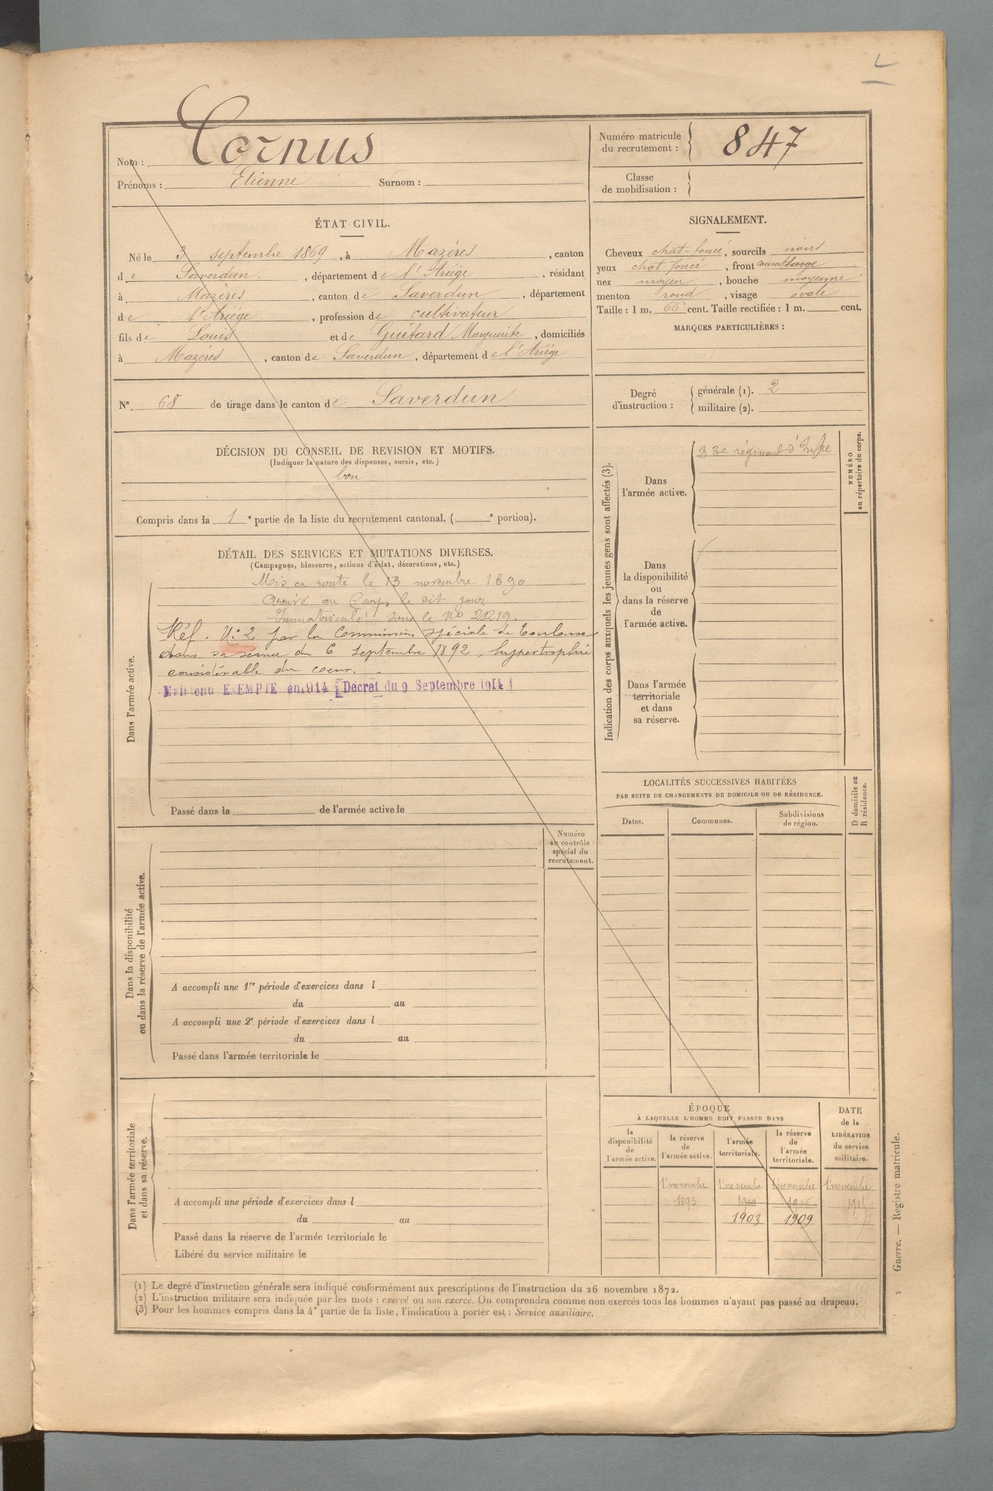 Nom : Cornus
Prénoms : Etienne Surnom :
Numéro matricule du recrutement : 847
Classe de mobilisation :
ÉTAT CIVIL.
Né le 3 septembre 1869, à Mazères, canton
de Saverdun, département de l'Ariége, résidant
à Mazères, canton de Saverdun, département
de l'Ariége, profession de cultivateur
fils de Louis et de Guitard Marguerite, domiciliés
à Mazères, canton de Saverdun, département de l'Ariége
N° 68 de tirage dans le canton de Saverdun
SIGNALEMENT.
Cheveux chat-foncé, sourcils noirs
yeux chat foncé, front large
nez moyen, bouche moyenne
menton rond, visage ovale
Taille : 1 m. 66 cent. Taille rectifiée : 1 m. cent.
MARQUES PARTICULIÈRES :
Degré d'instruction : générale (1). 2
militaire (2).
DÉCISION DU CONSEIL DE REVISION ET MOTIFS.
(Indiquer la nature des dispenses, sursis, etc.)
bon
Compris dans la 1e partie de la liste du recrutement cantonal. ( e portion).
DÉTAIL DES SERVICES ET MUTATIONS DIVERSES.
(Campagnes, blessures, actions d'éclat, décorations, etc.)
Dans l'armée active.
Mis en route le 13 novembre 1890
Arrivé au Corps le dit jour
Immatriculé sous le N° 2219.
Réf. N: 2 par la Commission spéciale de Toulouse
dans sa séance du 6 Septembre 1892, hypertrophie
considérable du coeur.
Maintenu EXEMPTÉ en 1914 Décret du 9 Septembre 1914
Passé dans la de l'armée active le
Indication des corps auxquels les jeunes gens sont affectés (3).
NUMÉRO au répertoire du corps.
Dans l'armée active.
régiment d'Infie
Dans la disponibilité ou dans la réserve de l'armée active.
Dans l'armée territoriale et dans sa réserve.
LOCALITÉS SUCCESSIVES HABITÉES
PAR SUITE DE CHANGEMENTS DE DOMICILE OU DE RÉSIDENCE.
Dates. Communes. Subdivisions de région. D domicile ou R résidence.
Numéro au contrôle spécial du recrutement.
Dans la disponibilité ou dans la réserve de l'armée active.
A accompli une 1re période d'exercices dans l
du au
A accompli une 2e période d'exercices dans l
du au
Passé dans l'armée territoriale le
Dans l'armée territoriale et dans sa réserve.
A accompli une période d'exercices dans l
du au
Passé dans la réserve de l'armée territoriale le
Libéré du service militaire le
ÉPOQUE
À LAQUELLE L'HOMME DOIT PASSER DANS
DATE de la LIBÉRATION du service militaire.
la disponibilité de l'armée active. la réserve de l'armée active. l'armée territoriale. la réserve de l'armée territoriale.
1er novembre 1er novembre 1er novembre 1er novembre
1893
1903 1909
(1) Le degré d'instruction générale sera indiqué conformément aux prescriptions de l'instruction du 26 novembre 1872.
(2) L'instruction militaire sera indiquée par les mots : exercé ou non exercé. On comprendra comme non exercés tous les hommes n'ayant pas passé au drapeau.
(3) Pour les hommes compris dans la 4e partie de la liste, l'indication à porter est : Service auxiliaire.
Guerre. — Registre matricule.